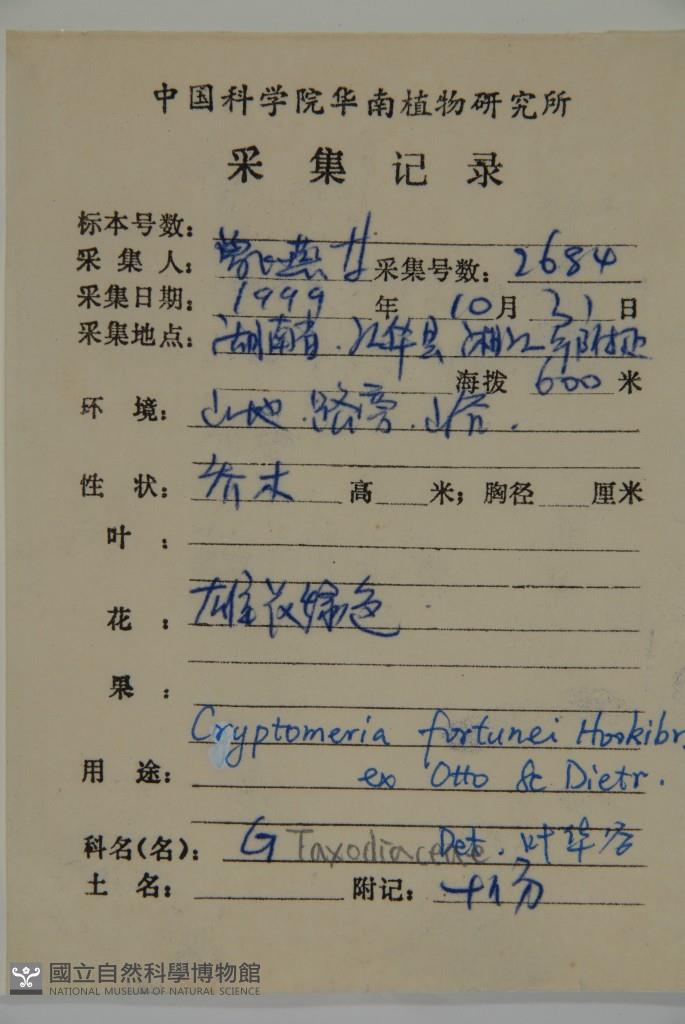 中国科学院华南植物研究所
采集记录
标本号数:
采集人: 曾 燕 采集号数: 2684
采集日期: 1999 年 10 月 31 日
采集地点: 湖南省.江华县 湘江
海拨 600 米
环境: 山地.路旁.山谷.
性状: 乔木 高 米; 胸径 厘米
叶:
花: 雄花绿色
果:
Cryptomeria fortunei Hooibr
用途: ex Otto & Dietr.
科名(名): G Taxodiaceae Det. 叶华谷
土名: 附记: 十份
國立自然科學博物館
NATIONAL MUSEUM OF NATURAL SCIENCE